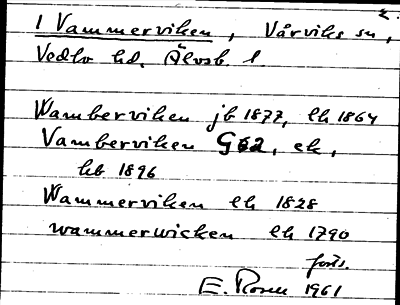 2.
1 Vammerviken, Vårviks sn,
Vedbo hd. Älvsb. l.
Wamberviken jb 1877, lh 1864
Vamberviken G62, ek,
hb 1896
Wammerviken lh 1828
wammerwicken lh 1790
forts.
E. Rosell 1961